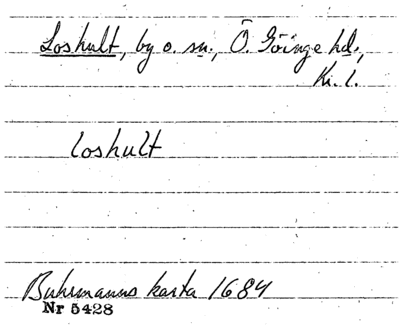 Loshult, by o. sn., Ö. Göinge hd.,
Kr. l.
loshult
Buhrmanns karta 1684
Nr 5428